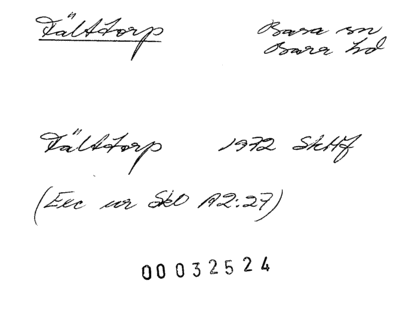 Fälttorp Bara sn
Bara hd
Fälttorp 1972 SkHf
(Exc ur SkO A2:27)
00032524